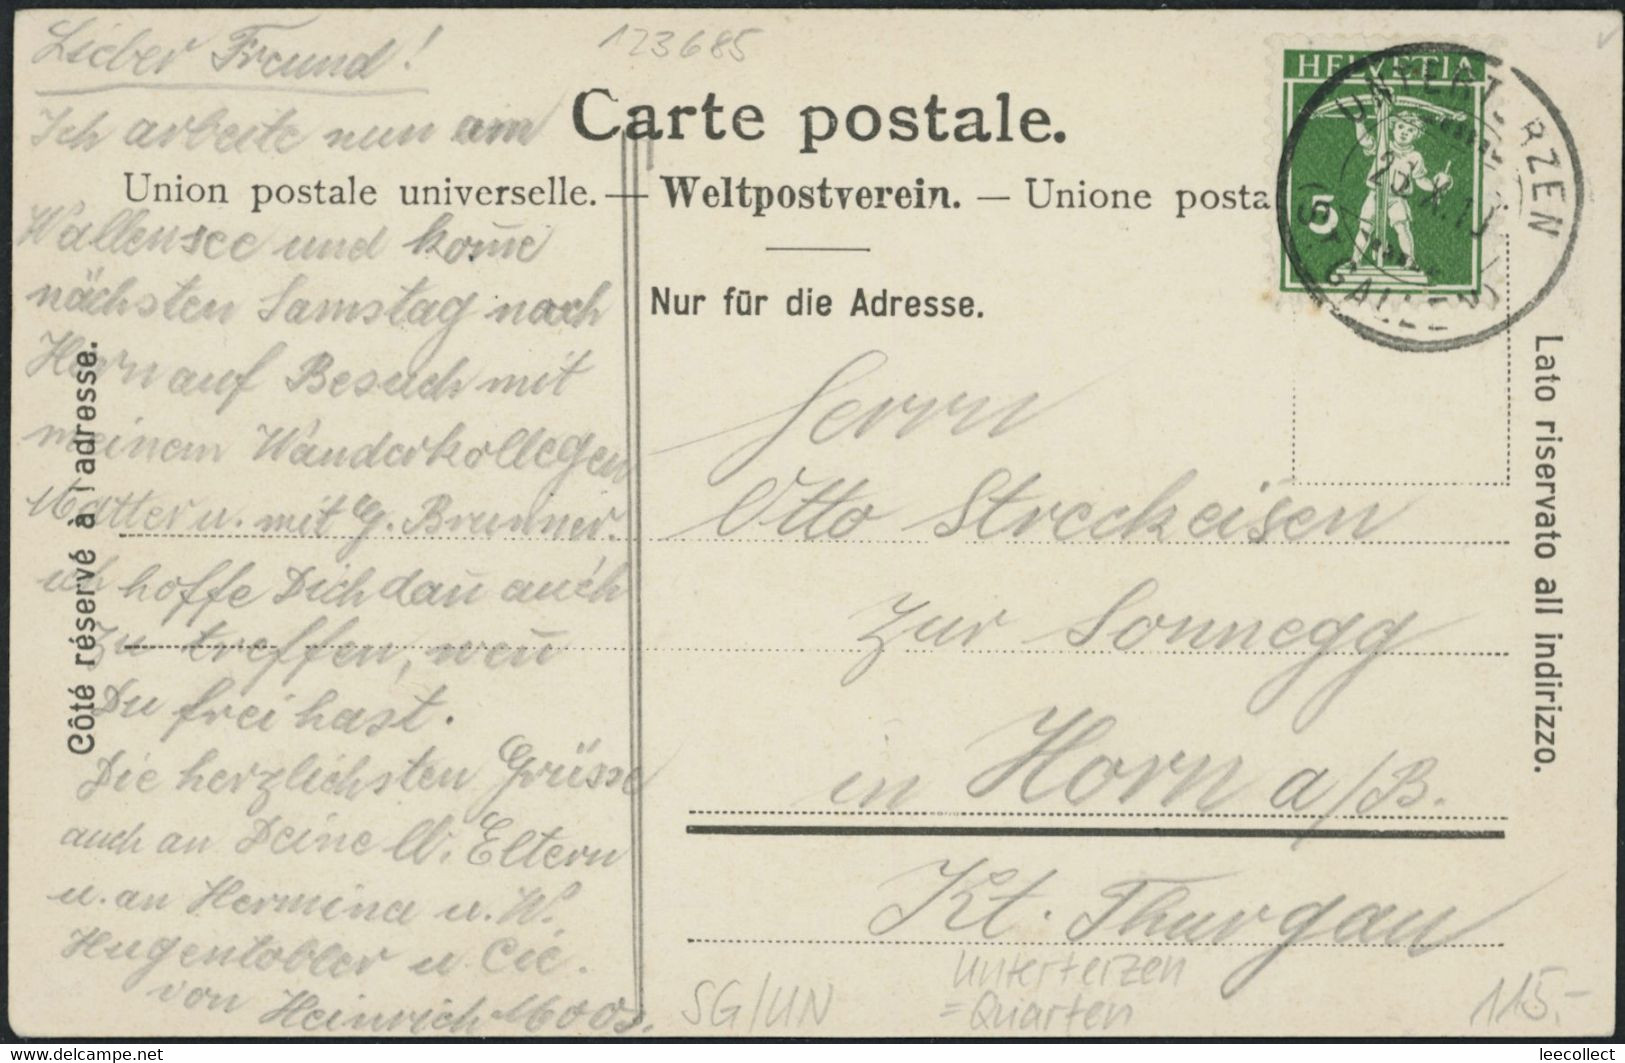 Lieber Freund!
123685
Ich arbeite nun am
Wallensee und kom̄e
nächsten Samstag nach
Horn auf Besuch mit
meinem Wanderkollegen
Matter u. mit G. Brunner.
ich hoffe Dich dan̄ auch
zu treffen, wen̄
Du frei hast.
Die herzlichsten Grüsse
auch an Deine lb. Eltern
u. an Hermina u. W.
Hugentobler u. Cie.
von Heinrich Moos.
Carte postale.
Union postale universelle. — Weltpostverein. — Unione posta
Nur für die Adresse.
Côté réservé à l'adresse.
Lato riservato all indirizzo.
HELVETIA
5
UNTERT·RZEN
X.1
(ST. GALLEN)
Herrn
Otto Streckeisen
Zur Sonnegg
in Horn a/B.
Kt. Thurgau
SG/UN
Unterterzen
=Quarten
115.-
www.delcampe.net
leecollect